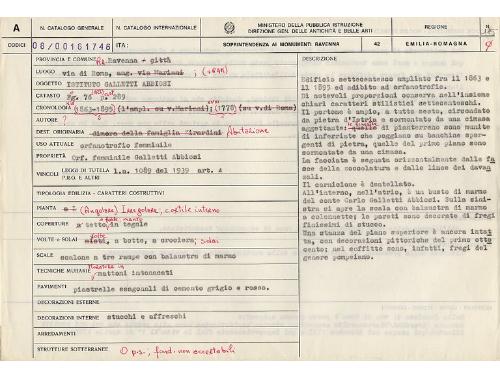 A
N. CATALOGO GENERALE
N. CATALOGO INTERNAZIONALE
MINISTERO DELLA PUBBLICA ISTRUZIONE
DIREZIONE GEN. DELLE ANTICHITÀ E BELLE ARTI
REGIONE
N.
CODICI
08/00161746
ITA:
SOPRINTENDENZA AI MONUMENTI RAVENNA
42
EMILIA-ROMAGNA
PROVINCIA E COMUNE: Ra Ravenna - città
LUOGO via di Roma, ang. via Mariani;
OGGETTO ISTITUTO GALLETTI ABBIOSI
CATASTO Fg. 76 p. 289
CRONOLOGIA (1863-1895) (l'ampl. su v.Mariani); (1778) (su v.di Roma)
AUTORE ?
DEST. ORIGINARIA dimora della famiglia Rirardini Abitazione
USO ATTUALE orfanotrofio femminile
PROPRIETÀ Orf. femminile Galletti Abbiosi
VINCOLI LEGGI DI TUTELA l.n. 1089 del 1939 art. 4
P.R.G. E ALTRI
TIPOLOGIA EDILIZIA - CARATTERI COSTRUTTIVI
PIANTA (Angolare) Irregolare, cortile interno
COPERTURE a tetto in tegole
VOLTE o SOLAI misti, a botte, a crociera; solai
SCALE scalone a tre rampe con balaustra di marmo
TECNICHE MURARIE mattoni intonacati
PAVIMENTI piastrelle esagonali di cemento grigio e rosso.
DECORAZIONI ESTERNE
DECORAZIONI INTERNE stucchi e affreschi
ARREDAMENTI
STRUTTURE SOTTERRANEE O p.s., fond. non accertabili
DESCRIZIONE
Edificio settecentesco ampliato fra il 1863 e
il 1895 ed adibito ad orfanotrofio.
Di notevoli proporzioni conserva nell'insieme
chiari caratteri stilistici settecenteschi.
Il portone è ampio, a tutto sesto, circondato
da pietra d'Istria e sormontato da una cimasa
aggettante: quelle di pianterreno sono munite
di inferriate che poggiano su banchine spor-
genti di pietra, quelle del primo piano sono
sormontate da una cimasa.
La facciata è segnata orizzontalmente dalle fa
sce della zoccolatura e dalle linee dei davan
zali.
Il cornicione è dentellato.
All'interno, nell'atrio, è un busto di marmo
del conte Carlo Galletti Abbiosi. Sulla sini-
stra si apre la scala con balaustra di marmo
a colonnette; le pareti sono decorate di fregi
finissimi di stucco.
Una stanza del piano superiore è ancora intat
ta, con decorazioni pittoriche del primo otto
cento; nel soffitto sono, infatti, fregi del
genere pompeiano.